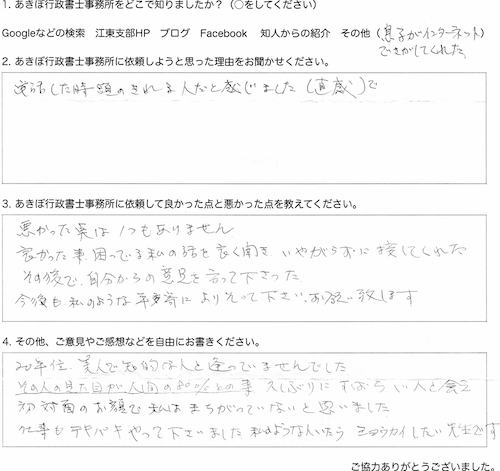 1. あきぼ行政書士事務所をどこで知りましたか？（○をしてください）
Googleなどの検索　江東支部HP　ブログ　Facebook　知人からの紹介　その他（息子がインターネット）
でさがしてくれた
2. あきぼ行政書士事務所に依頼しようと思った理由をお聞かせください。
電話した時頭のきれる人だと感じました（直感）で
3. あきぼ行政書士事務所に依頼して良かった点と悪かった点を教えてください。
悪かった点は1つもありません
良かった事 困っている私の話を良く聞き いやがらずに接してくれた
その後で、自分からの意見を言って下さった
今後も私のような年寄によりそって下さい、お願い致します
4. その他、ご意見やご感想などを自由にお書きください。
20年位 美人で知的な人と逢っていませんでした
その人の見た目が人間の80%との事 久しぶりにすばらしい人と会え
初対面のお顔で私はまちがっていないと思いました
仕事もテキパキやって下さいました 私のような人いたら したい先生です
ご協力ありがとうございました。